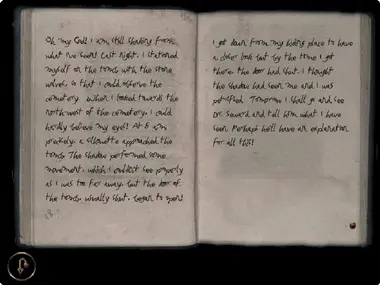 Oh my God! I am still shaking from
what I've seen! Last night, I stationed
myself on the tomb with the stone
wolves, so that I could observe the
cemetery. When I looked towards the
north-west of the cemetery, I could
hardly believe my eyes! At 6 am
precisely, a silhouette approached the
tomb. The shadow performed some
movement, which I couldn't see properly
as I was too far away, but the door of
the tomb, usually shut, began to open!
I got down from my hiding place to have
a closer look but by the time I got
there the door had shut. I thought
the shadow had seen me and I was
petrified. Tomorrow I shall go and see
Dr. Seward and tell him what I have
seen. Perhaps he'll have an explanation
for all this!